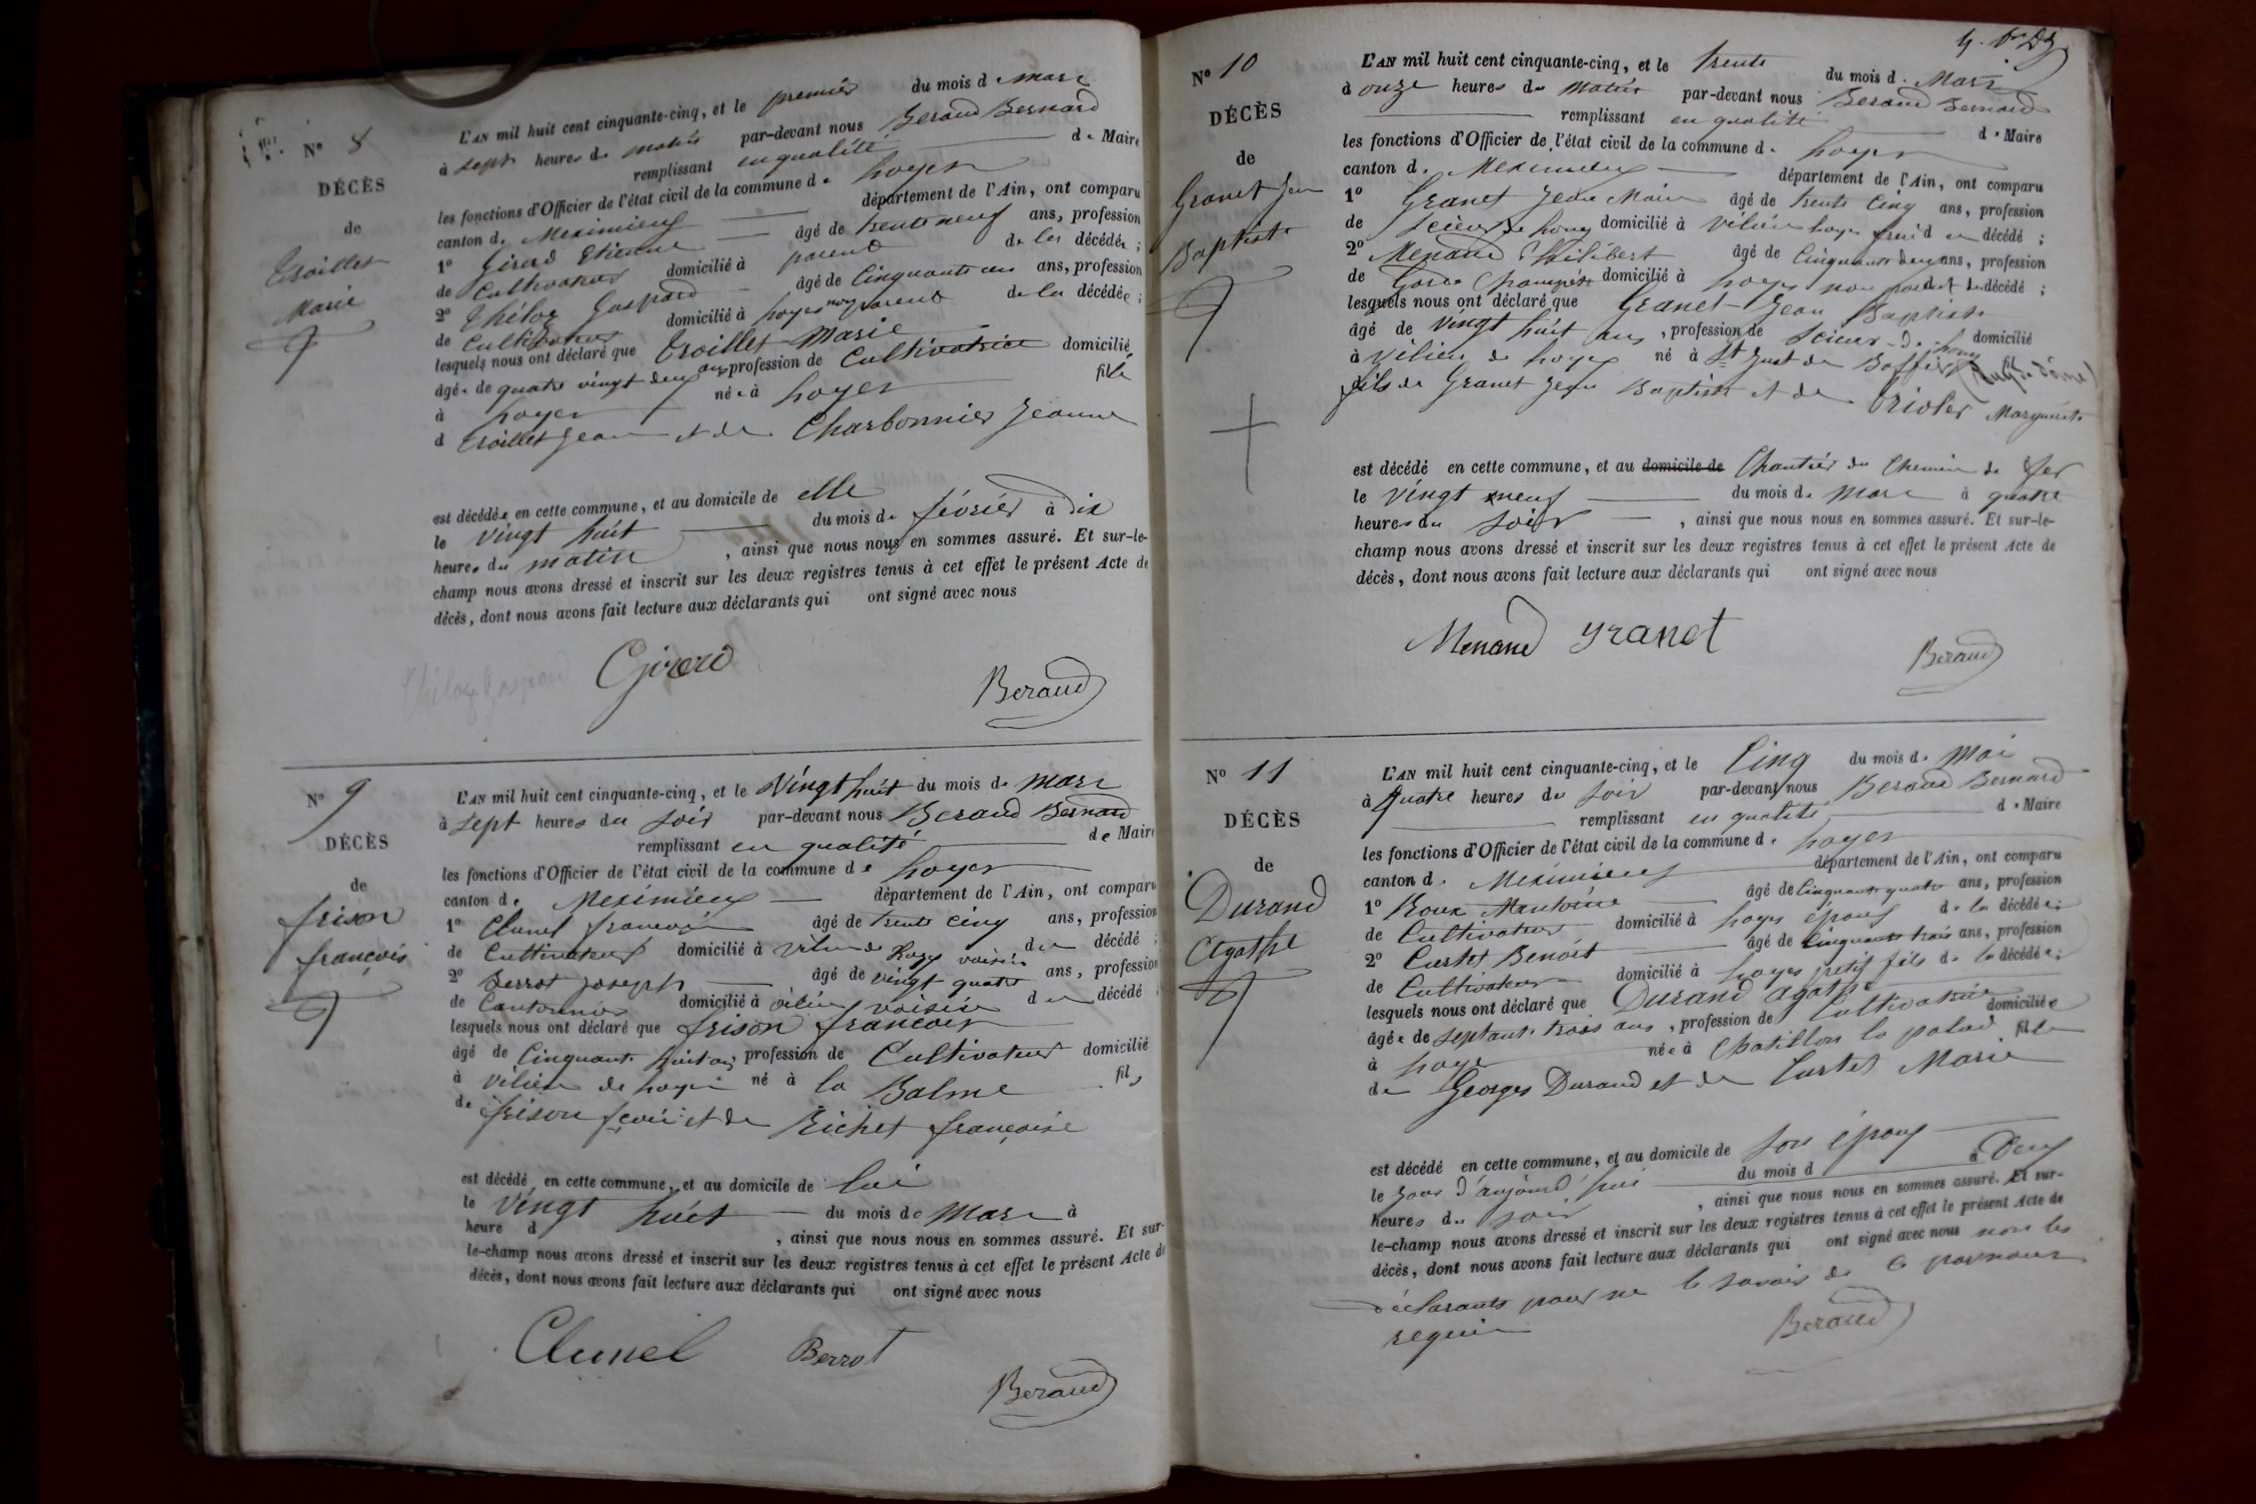 N° 8
DÉCÈS
de
Troillet
Marie
L'AN mil huit cent cinquante-cinq, et le premier du mois d Mars
à sept heures du matin par-devant nous Beraud Bernard
remplissant en qualité de Maire
les fonctions d'Officier de l'état civil de la commune de Loyes
canton de Meximieux département de l'Ain, ont comparu
1° Girard Etienne âgé de trente neuf ans, profession
de Cultivateur domicilié à parent de la décédée ;
2° Théloz Gaspard âgé de Cinquante ans, profession
de Cultivateur domicilié à Loyes non parent de la décédée ;
lesquels nous ont déclaré que Troillet Marie
âgée de quatre vingt deux ans profession de Cultivatrice domiciliée
à Loyes née à Loyes fille
d Troillet Jean et de Charbonnier Jeanne
est décédée en cette commune, et au domicile de elle
le vingt huit du mois de février à dix
heures du matin , ainsi que nous nous en sommes assuré. Et sur-le-
champ nous avons dressé et inscrit sur les deux registres tenus à cet effet le présent Acte de
décès, dont nous avons fait lecture aux déclarants qui ont signé avec nous
Théloz Gaspard Girard
Beraud
N° 9
DÉCÈS
de
frison
françois
L'AN mil huit cent cinquante-cinq, et le Vingt huit du mois de Mars
à sept heures du soir par-devant nous Beraud Bernard
remplissant en qualité de Maire
les fonctions d'Officier de l'état civil de la commune de Loyes
canton de Meximieux département de l'Ain, ont comparu
1° Clunel françois âgé de trente cinq ans, profession
de Cultivateur domicilié à vilieu de Loyes voisin du décédé ;
2° Berrot Joseph âgé de vingt quatre ans, profession
de Cantonnier domicilié à vilieu voisin du décédé
lesquels nous ont déclaré que frison françois
âgé de Cinquante huit ans profession de Cultivateur domicilié
à vilieu de Loyes né à la Balme fils
de frison et de Richet françoise
est décédé en cette commune, et au domicile de lui
le Vingt huit du mois de Mars à
heure d , ainsi que nous nous en sommes assuré. Et sur-
le-champ nous avons dressé et inscrit sur les deux registres tenus à cet effet le présent Acte de
décès, dont nous avons fait lecture aux déclarants qui ont signé avec nous
Clunel Berrot
Beraud
N° 10
DÉCÈS
de
Granet Jean
Baptiste
L'AN mil huit cent cinquante-cinq, et le trente du mois d Mars
à onze heures du matin par-devant nous Beraud Bernard
remplissant en qualité de Maire
les fonctions d'Officier de l'état civil de la commune de Loyes
canton de Meximieux département de l'Ain, ont comparu
1° Granet Jean Marie âgé de trente Cinq ans, profession
de Scieur de long domicilié à vilieu Loyes du décédé ;
2° Menand Philibert âgé de Cinquante deux ans, profession
de Garde Champêtre domicilié à Loyes non parent du décédé ;
lesquels nous ont déclaré que Granet Jean Baptiste
âgé de vingt huit ans , profession de Scieur de long domicilié
à Vilieu de Loyes né à St Just de Baffie (Puy de Dôme) fil
fils de Granet Jean Baptiste et de Marguerite
est décédé en cette commune, et au domicile de Chantier du Chemin de fer
le vingt neuf du mois de Mars à quatre
heures du soir , ainsi que nous nous en sommes assuré. Et sur-le-
champ nous avons dressé et inscrit sur les deux registres tenus à cet effet le présent Acte de
décès, dont nous avons fait lecture aux déclarants qui ont signé avec nous
Menand granet
Beraud
N° 11
DÉCÈS
de
Durand
Agathe
L'AN mil huit cent cinquante-cinq, et le Cinq du mois de Mai
à Quatre heures du soir par-devant nous Beraud Bernard
remplissant en qualité de Maire
les fonctions d'Officier de l'état civil de la commune de Loyes
canton de Meximieux département de l'Ain, ont comparu
1° Roux Antoine âgé de Cinquante quatre ans, profession
de Cultivateur domicilié à Loyes époux de la décédée ;
2° Curtet Benoit âgé de Cinquante trois ans, profession
de Cultivateur domicilié à Loyes petit fils de la décédée ;
lesquels nous ont déclaré que Durand agathe
âgée de septante trois ans , profession de Cultivatrice domiciliée
à Loyes née à Chatillon la palud fille
de Georges Durand et de Curtet Marie
est décédé en cette commune, et au domicile de son époux
le jour d'aujourd'hui du mois d à Deux
heures du soir , ainsi que nous nous en sommes assuré. Et sur-
le-champ nous avons dressé et inscrit sur les deux registres tenus à cet effet le présent Acte de
décès, dont nous avons fait lecture aux déclarants qui ont signé avec nous non les
déclarants pour ne le savoir de ce par nous
requis
Beraud